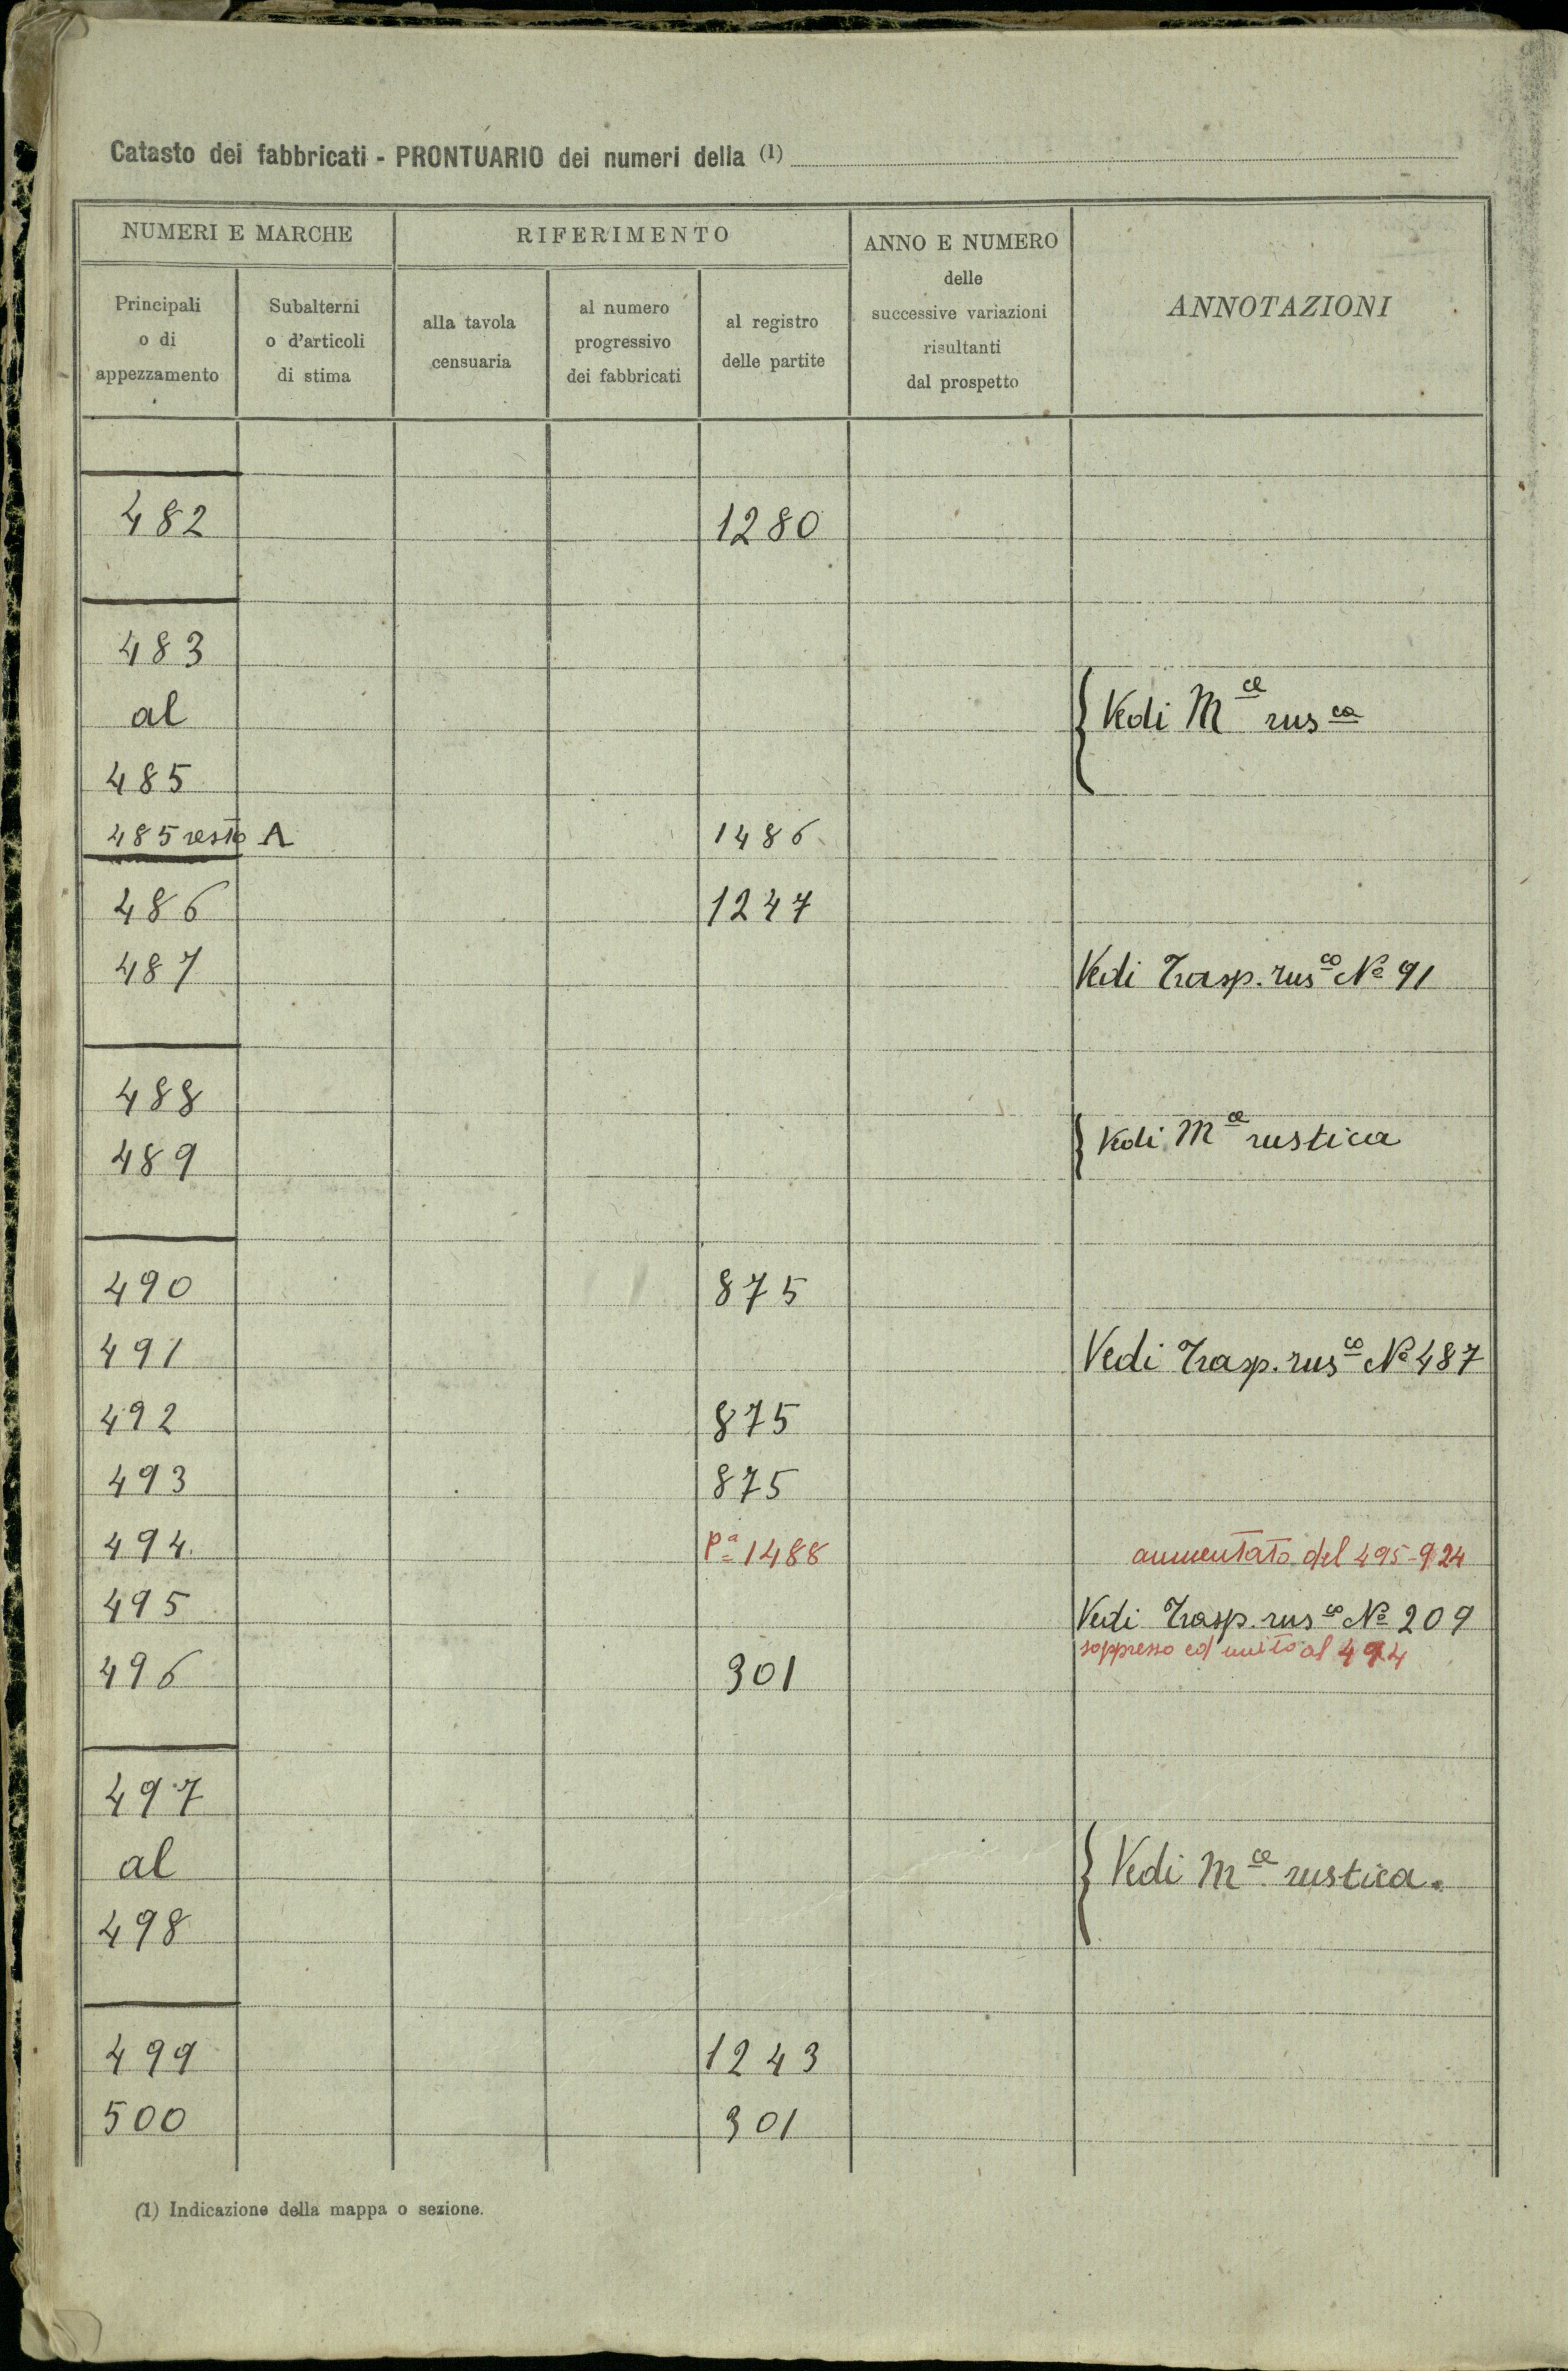 Catasto dei fabbricati - PRONTUARIO dei numeri della (1)
NUMERI E MARCHE
RIFERIMENTO
ANNO E NUMERO
delle
successive variazioni
risultanti
dal prospetto
ANNOTAZIONI
Principali
o di
appezzamento
Subalterni
o d'articoli
di stima
alla tavola
censuaria
al numero
progressivo
dei fabbricati
al registro
delle partite
482 1280
483
al Vedi Mce rusca
485
485 resto A 1486
486 1247
487 Vedi Trasp. rusco No 91
488
Vedi Mce rustica
489
490 875
491 Vedi Trasp. rusco No 487
492 875
493 875
494 Pa 1488 aumentato del 495-924
495 Vedi Trasp. rusco No 209
soppresso ed unito al 494
496 301
497
al Vedi Mce rustica.
498
499 1243
500 301
(1) Indicazione della mappa o sezione.